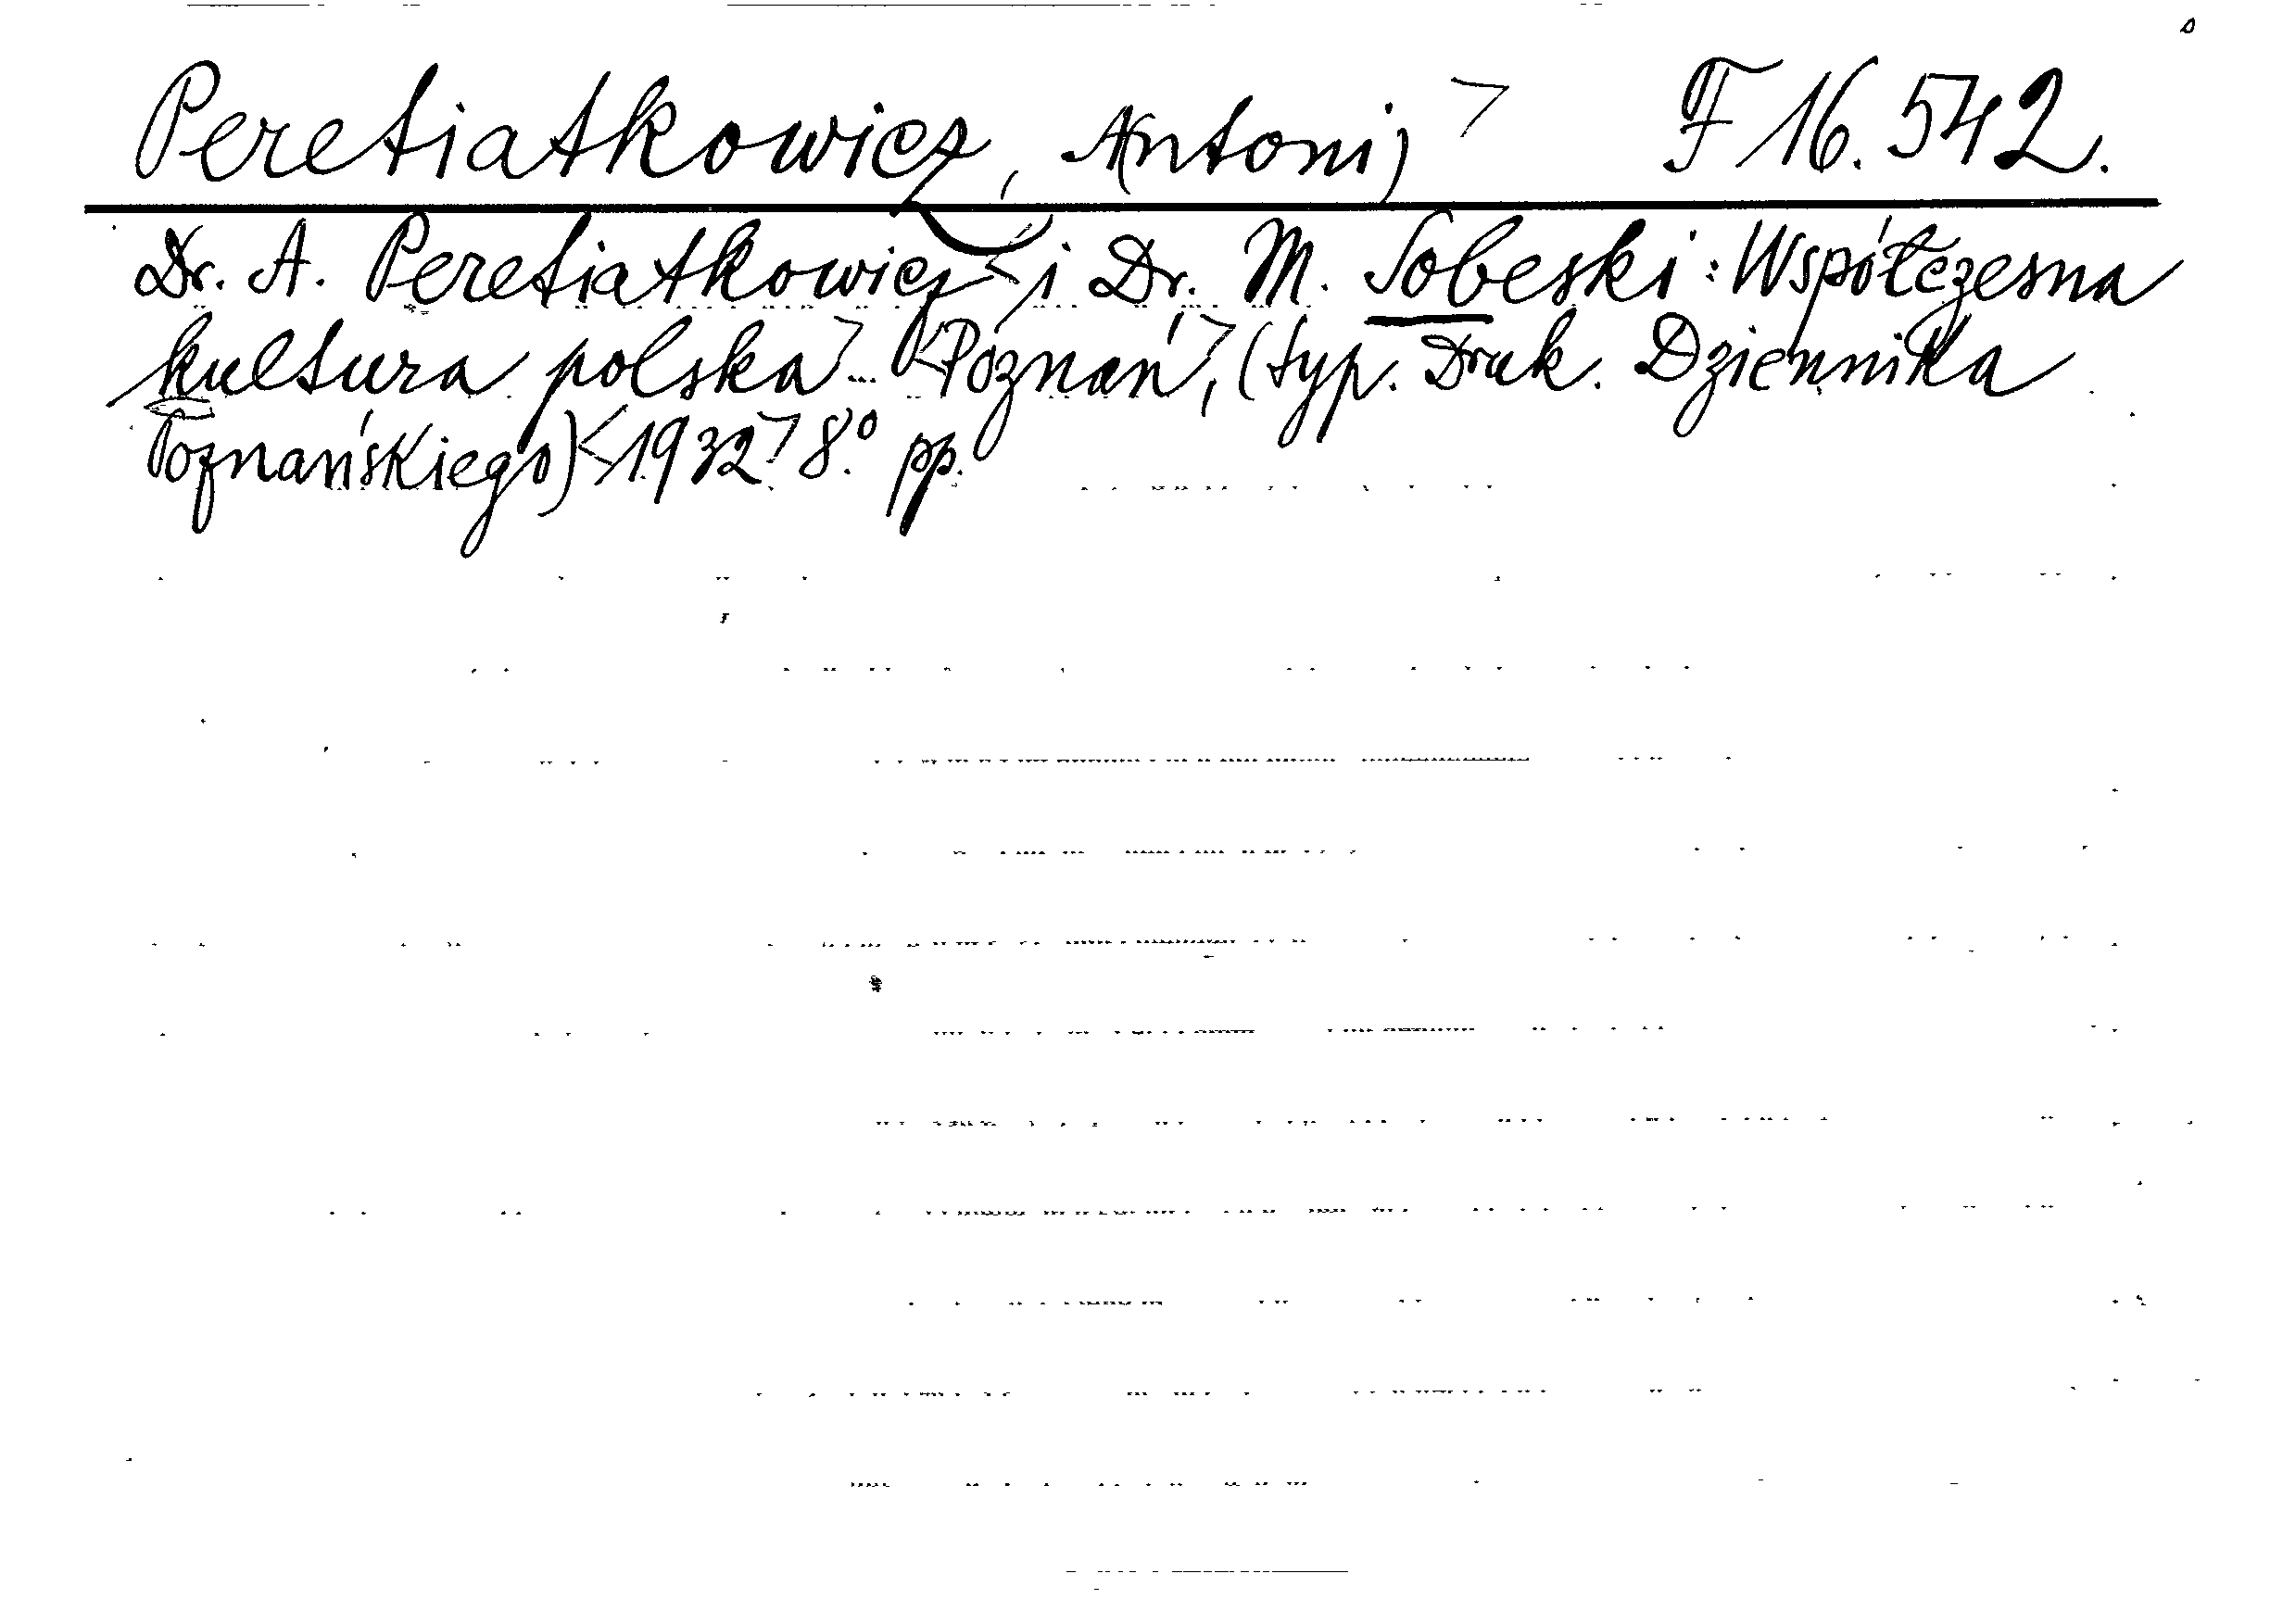 Peretiatkowicz, Antoni) > F 16.542.
Dr. A. Peretiatkowicz < i Dr. M. Sobeski : Współczesna
kultura polska > ... < Poznań >, (typ. Druk. Dziennika
Poznańskiego) < 1932 > 8.° pp.